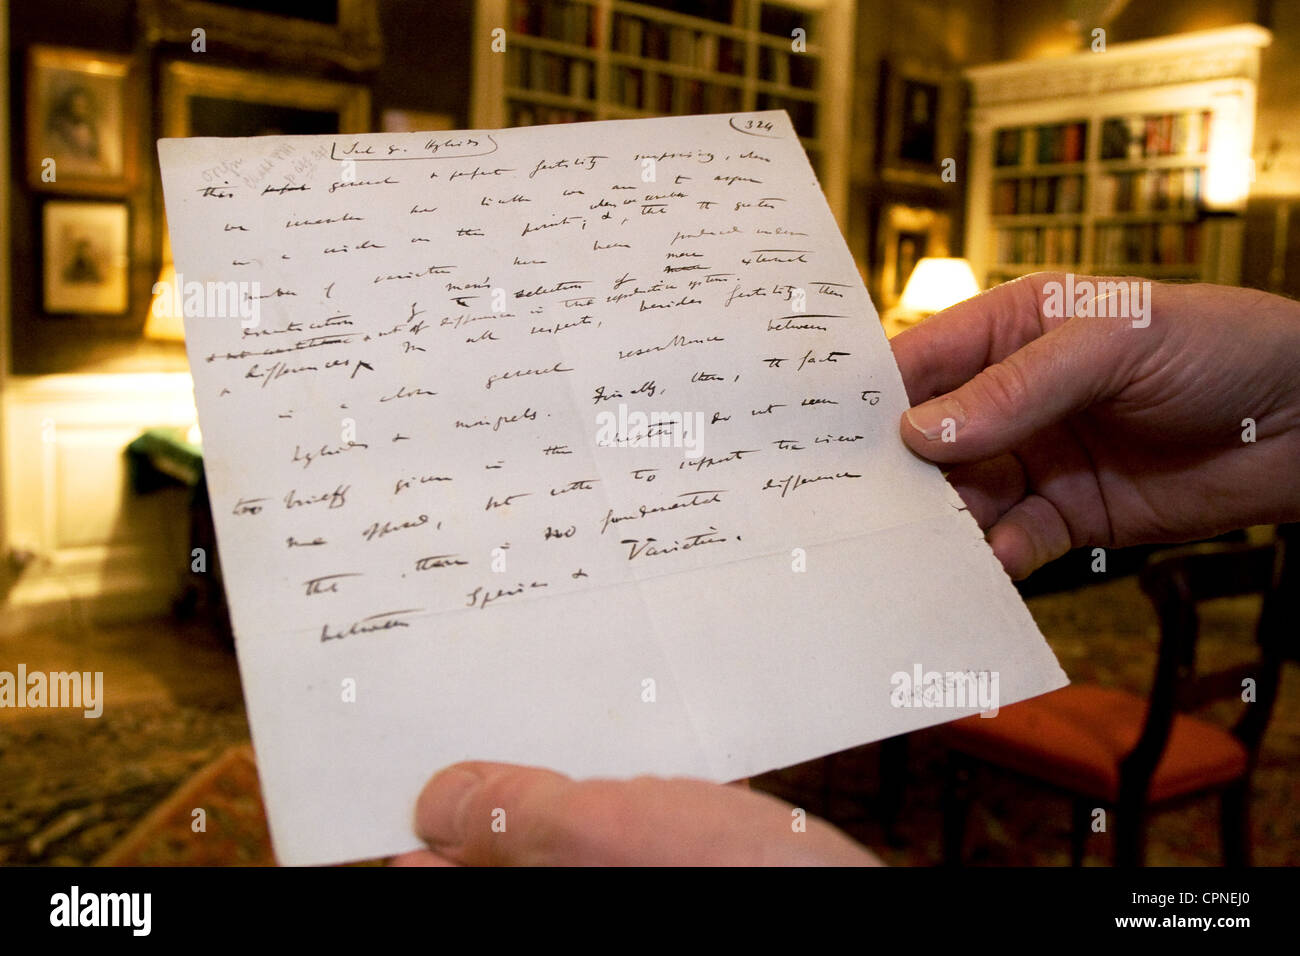 324
Sect 8. Hybrids
Origin
this perfect general & perfect fertility surprising, when
we remember how liable we are to argue
in a circle on this point; &, when we remember that the greater
number of varieties have been produced under
domestication by man's selection of mere external
differences, & not of differences in the reproductive system.
In all respects, besides fertility, there
is a close general resemblance between
hybrids & mongrels. Finally, then, the facts
too briefly given in this chapter, do not seem to
me opposed, but rather to support the view
that there is no fundamental difference
between Species & Varieties.
alamy
Image ID: CPNEJ0
www.alamy.com